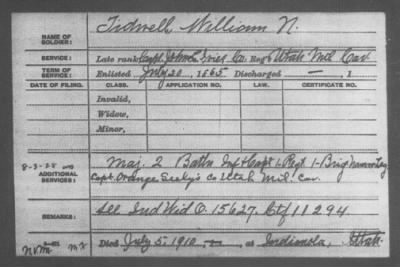 NAME OF SOLDIER: Tidwell, William N.
SERVICE: Late rank Capt. John L. Ivies Co. Reg't Utah Mil Cav.
TERM OF SERVICE: Enlisted July 20, 1865 Discharged —, 1
DATE OF FILING. CLASS. APPLICATION NO. LAW. CERTIFICATE NO.
Invalid,
Widow,
Minor,
8-3-28
ADDITIONAL SERVICES: Maj. 2 Batln Inf & Capt 1 Regt 1- Brig
Capt. Orange Seely's Co Utah Mil! Cav.
REMARKS: See Ind Wid O. 15627, Ctf 11294
Died July 5, 1910, at Indianola, Utah